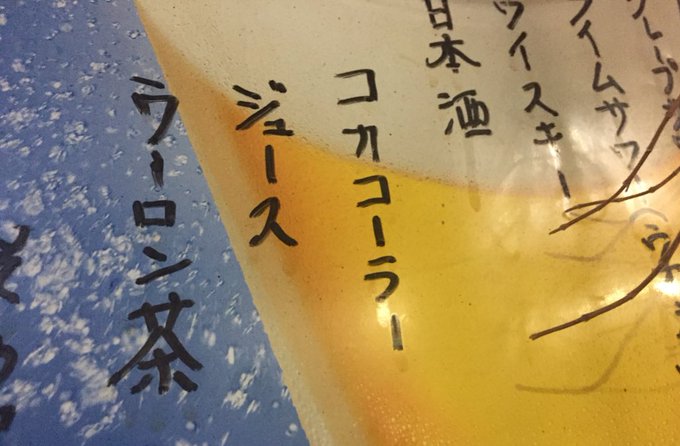 グレープ
ライムサワ
ウイスキー
日本酒
コカコーラー
ジュース
ウーロン茶